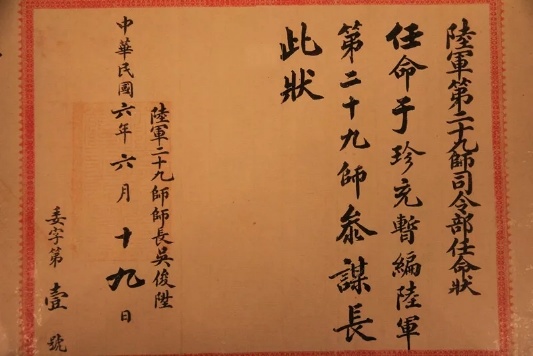 陸軍第二十九師司令部任命狀
任命于珍充暫編陸軍
第二十九師參謀長
此狀
陸軍二十九師師長吳俊陞
中華民國六年六月十九日
委字第壹號